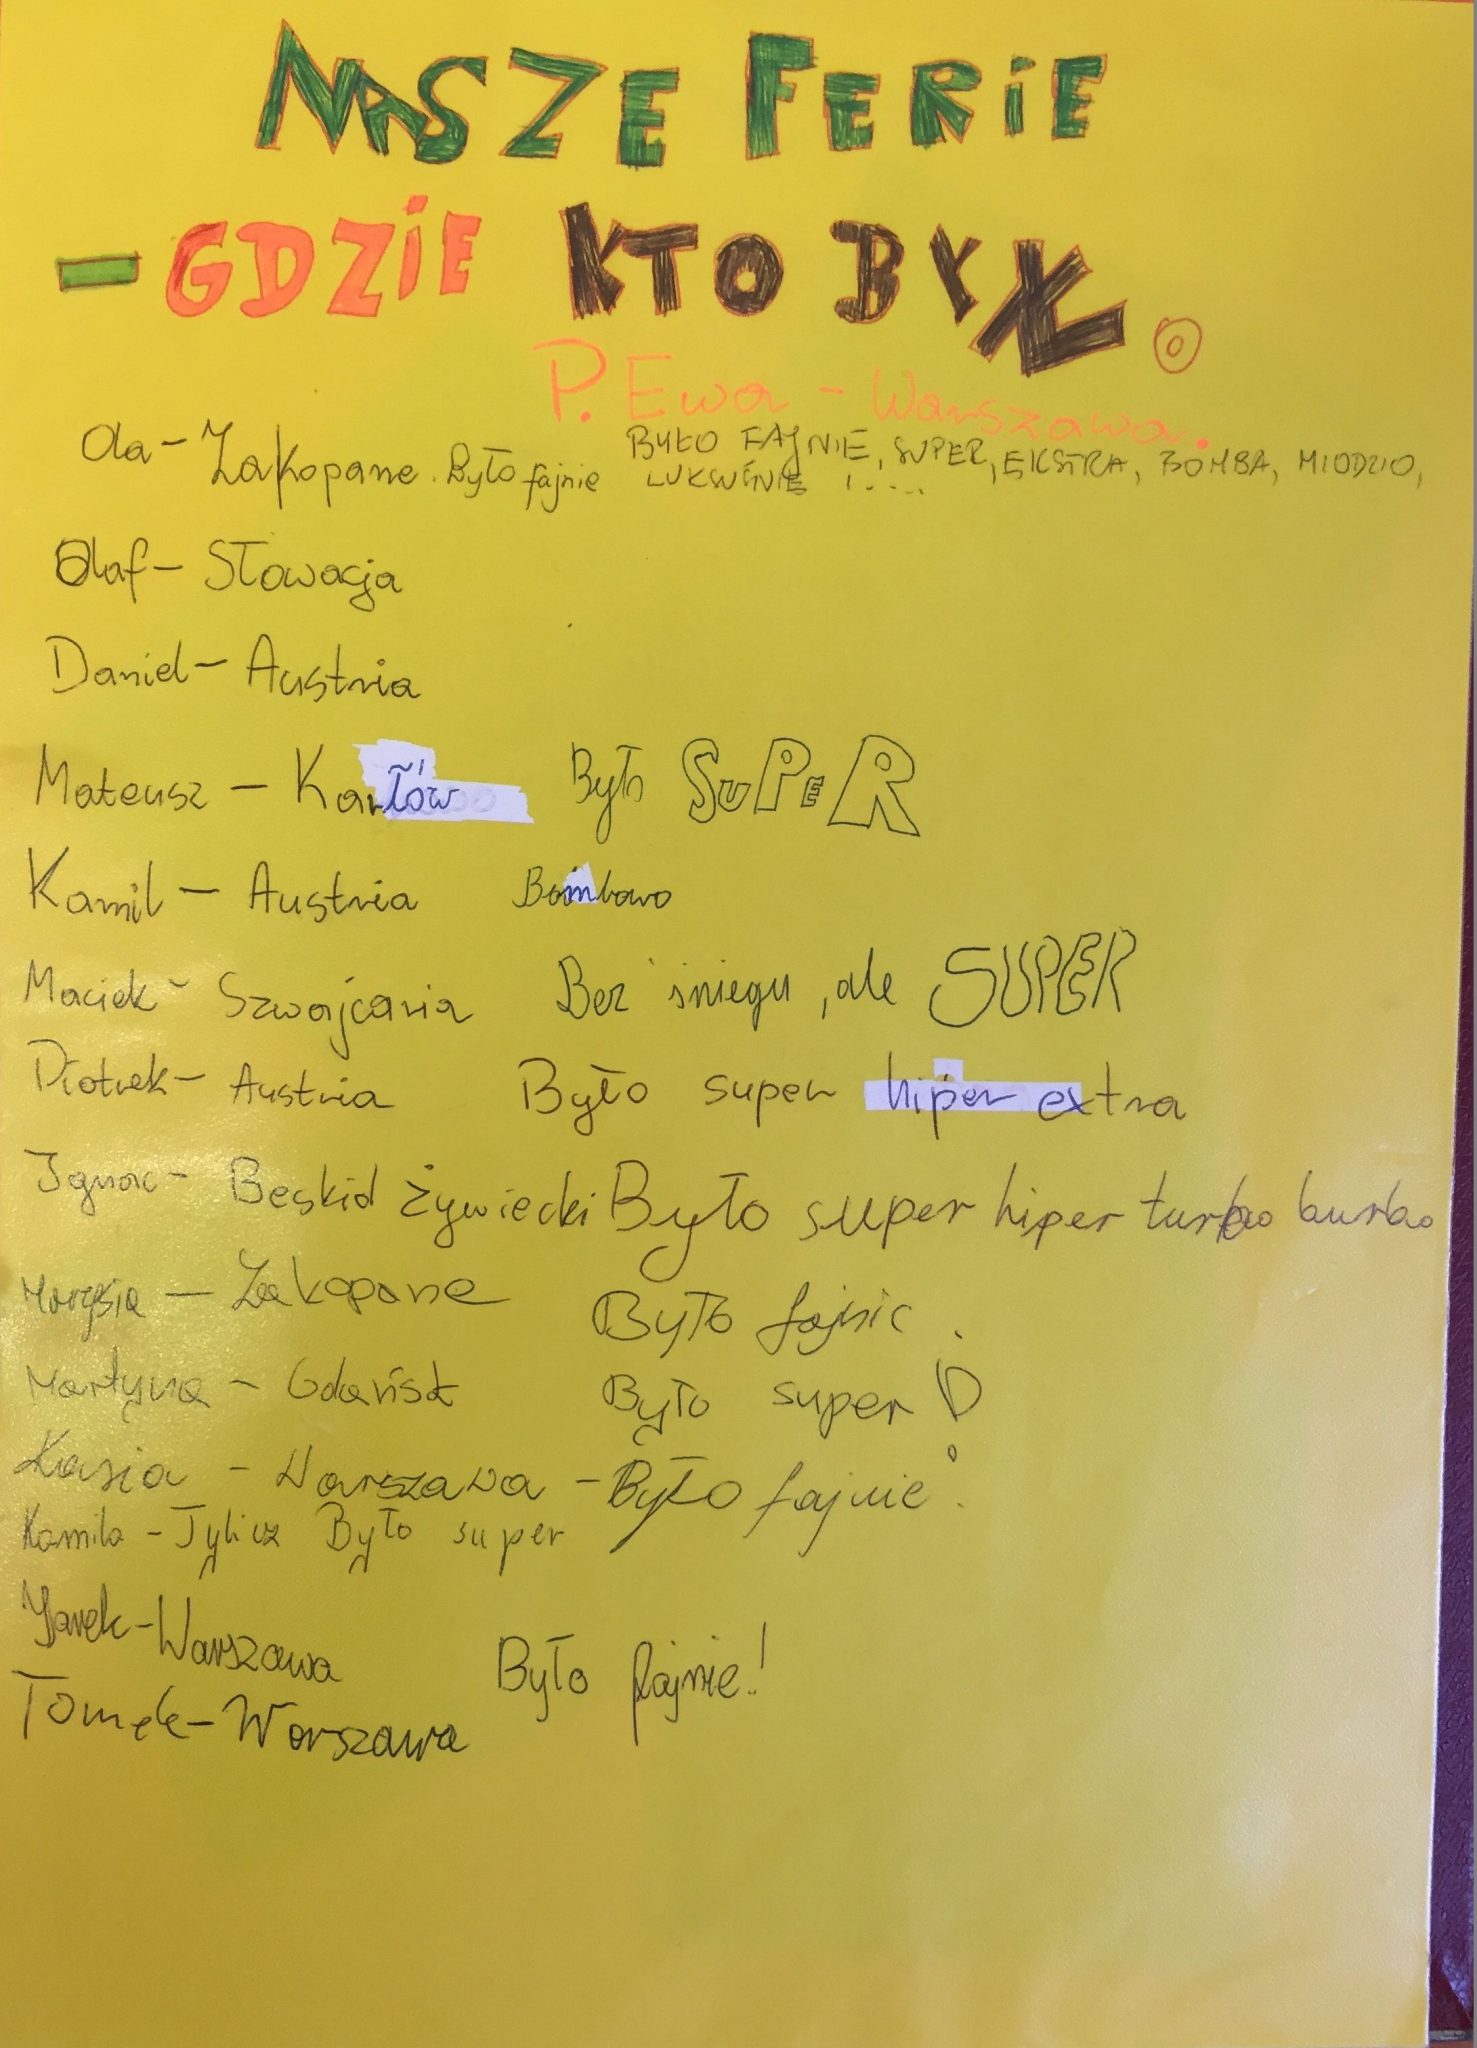 NASZE FERIE
- GDZIE KTO BYŁ.
P. Ewa - Warszawa.
Ola - Zakopane. Było fajnie
BYŁO FAJNIE, SUPER, EKSTRA, BOMBA, MIODZIO,
LUKSUŚNIE !....
Olaf - Słowacja
Daniel - Austria
Mateusz - Karłów Było SUPER
Kamil - Austria Bombowo
Maciek - Szwajcaria Bez śniegu, ale SUPER
Piotrek - Austria Było super hiper extra
Ignac - Beskid Żywiecki Było super hiper turbo burbo
Marysia - Zakopane Było fajnie.
Martyna - Gdańsk Było super!
Kasia - Warszawa - Było fajnie!
Kamila - Tylicz Było super
Jarek - Warszawa Było fajnie!
Tomek - Warszawa